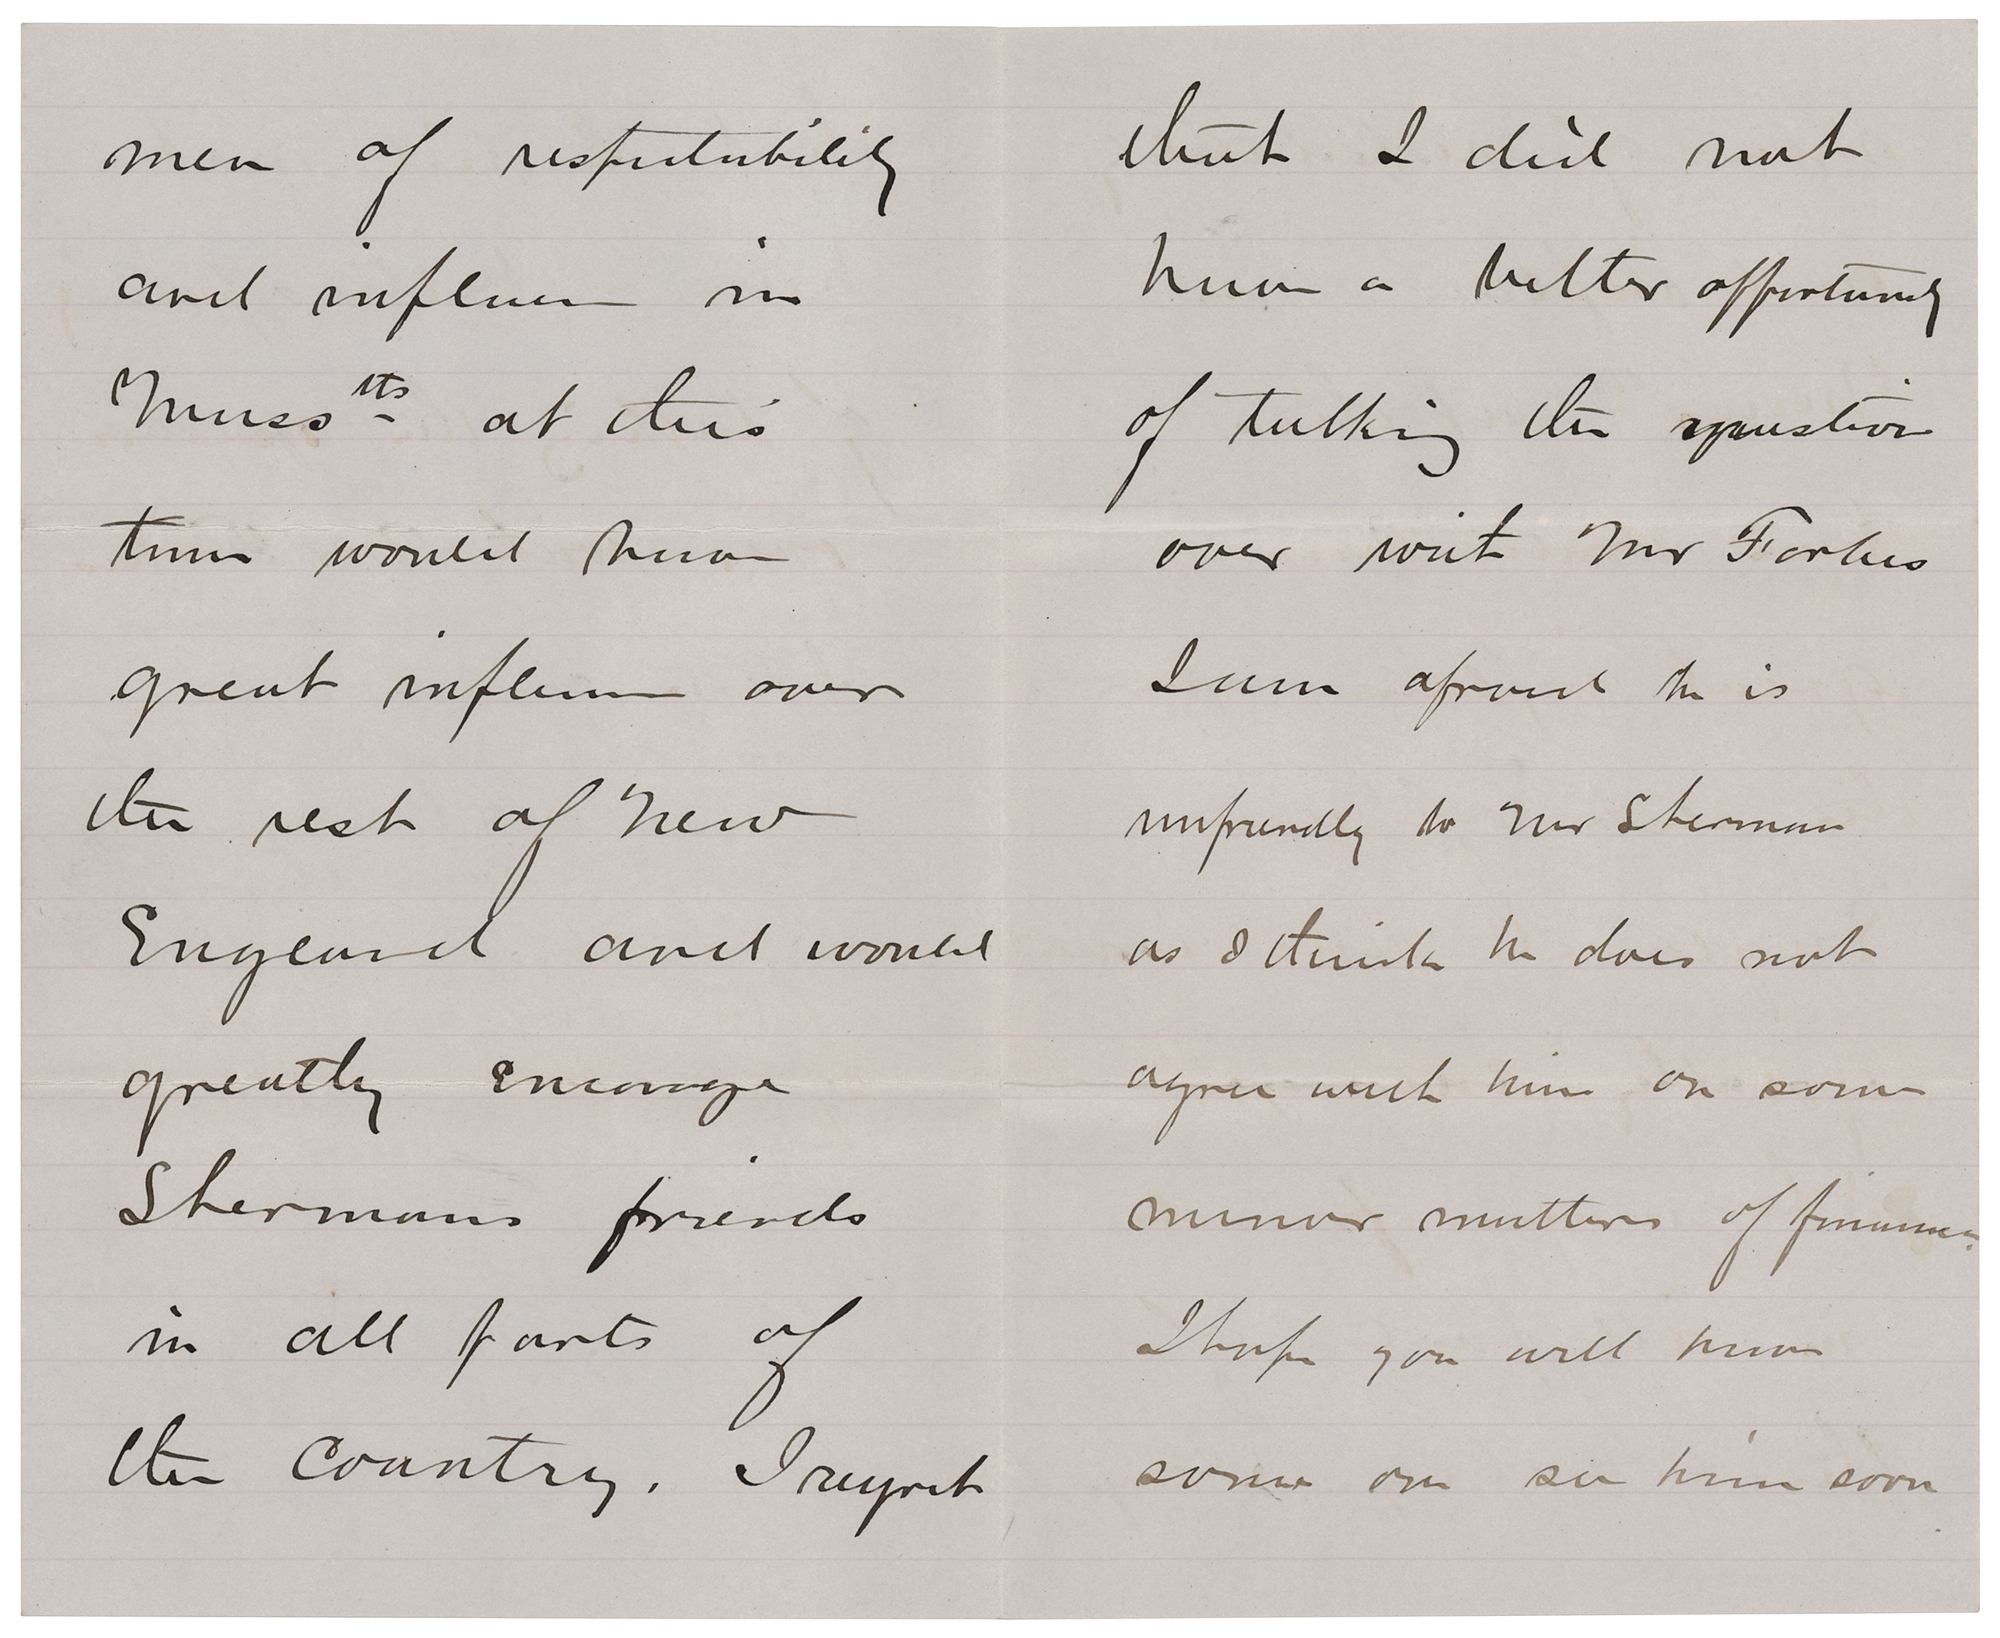 men of respectability
and influence in
Masstts at this
time would have
great influence over
the rest of New
England and would
greatly encourage
Shermans friends
in all parts of
the Country. I regret
that I did not
have a better opportunity
of talking the question
over with Mr Forbes
I am afraid he is
unfriendly to Mr Sherman
as I think he does not
agree with him on some
minor matters of finance.
I hope you will have
some one see him soon